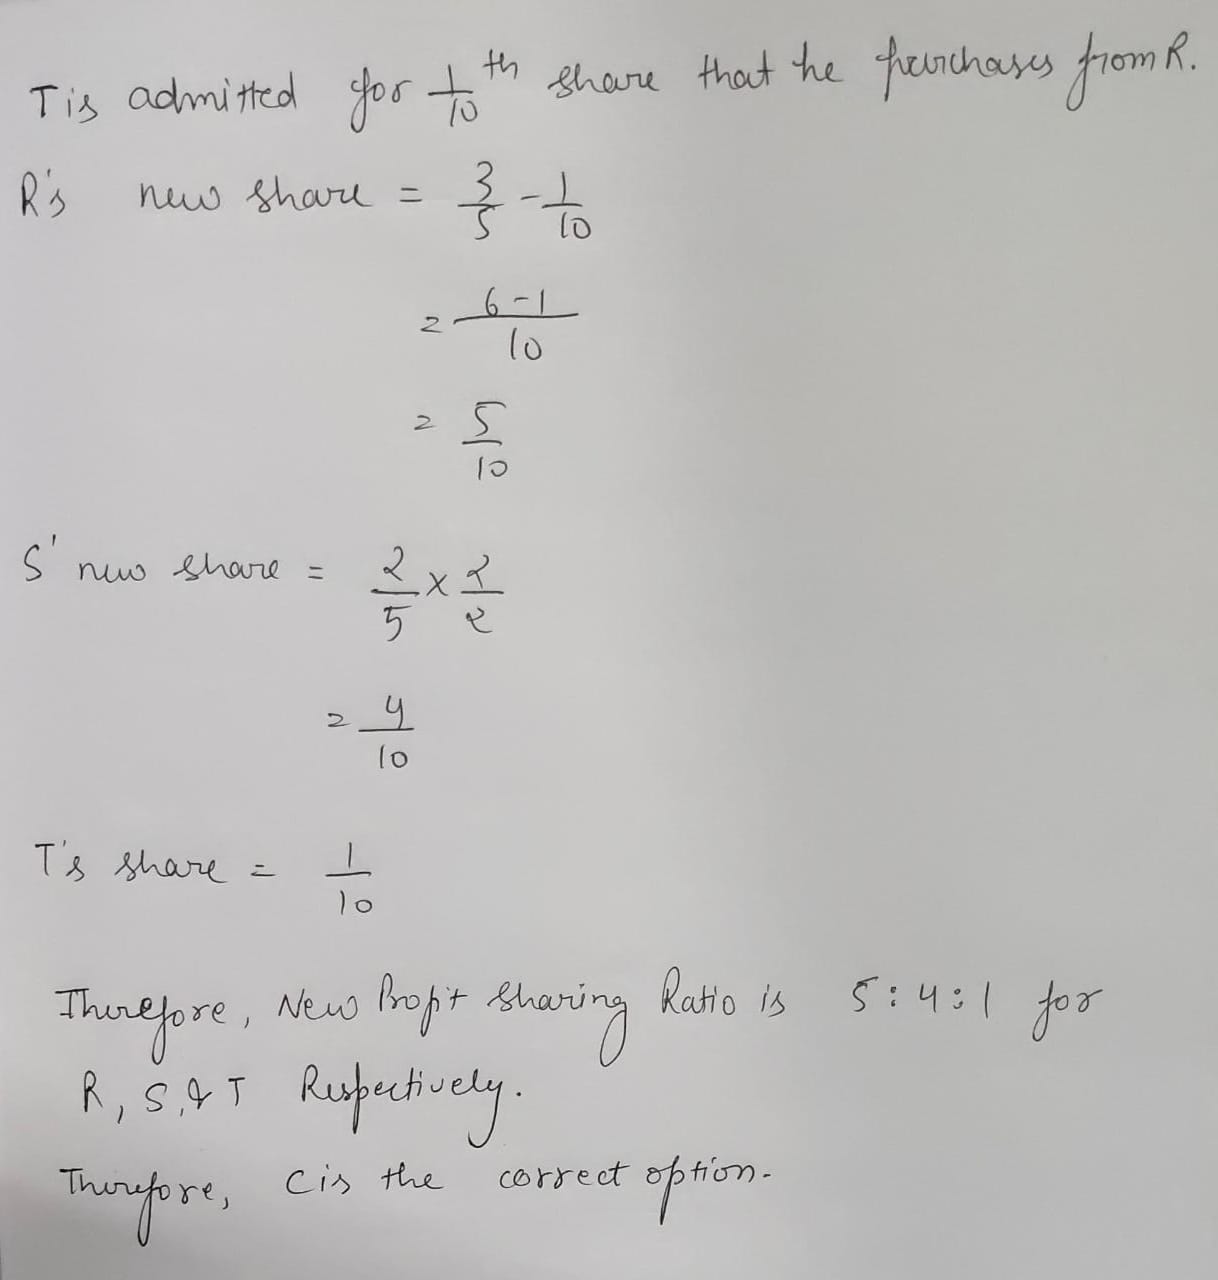 T is admitted for 1/10 th share that he purchases from R.
R's new share = 3/5 - 1/10
= 6-1/10
= 5/10
S' new share = 2/5 x 2/2
= 4/10
T's share = 1/10
Therefore, New Profit Sharing Ratio is 5:4:1 for
R, S, & T Respectively.
Therefore, C is the correct option.